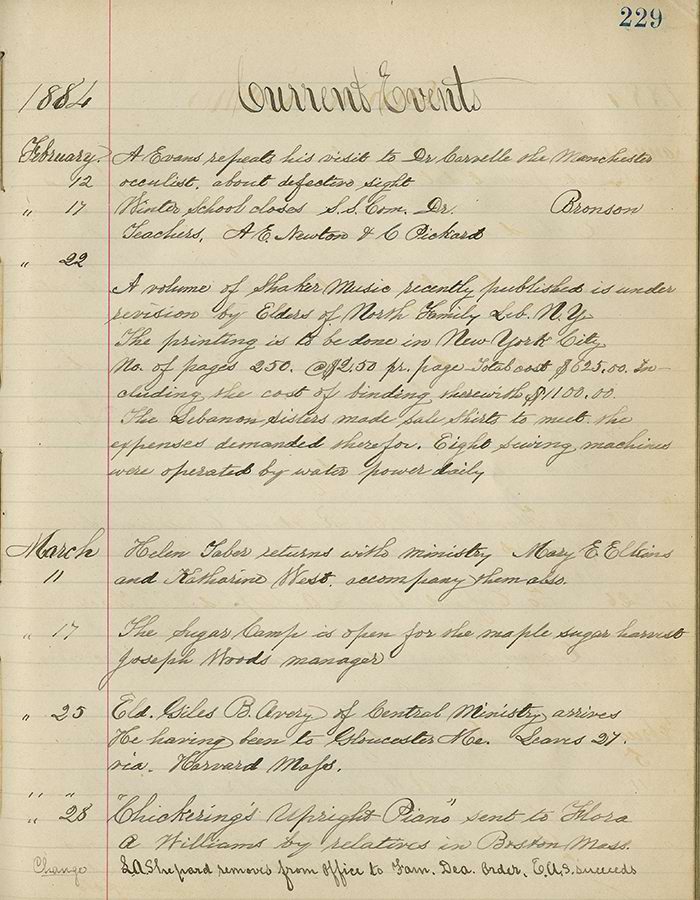 229
1884 Current Events
February. A Evans repeats his visit to Dr Carvelle the Manchester
12 occulist, about defective sight
" 17 Winter School closes S.S. Com. Dr. Bronson
Teachers, A E Newton & C Pickard
" 22
A volume of Shaker Music recently published is under
revision by Elders of North Family Leb. N.Y.
The printing is to be done in New York City
No. of pages 250. @ $2.50 pr. page Total cost $625.00. In-
cluding the cost of binding therewith $1100.00
The Lebanon sisters made sale shirts to meet the
expenses demanded therefor. Eight sewing machines
were operated by water power daily
March Helen Taber returns with ministry Mary E Elkins
11 and Katharine West. accompany them also.
" 17 The Sugar Camp is open for the maple sugar harvest
Joseph Woods manager
" 25 Eld. Giles B. Avery of Central Ministry arrives
He having been to Gloucester Me. Leaves 27.
via. Harvard Mass.
" "
" 28 "Chickering's Upright Piano" sent to Flora
A Williams by relatives in Boston Mass.
Change L A Shepard removes from Office to Fam. Dea. order. E.A.S. succeeds